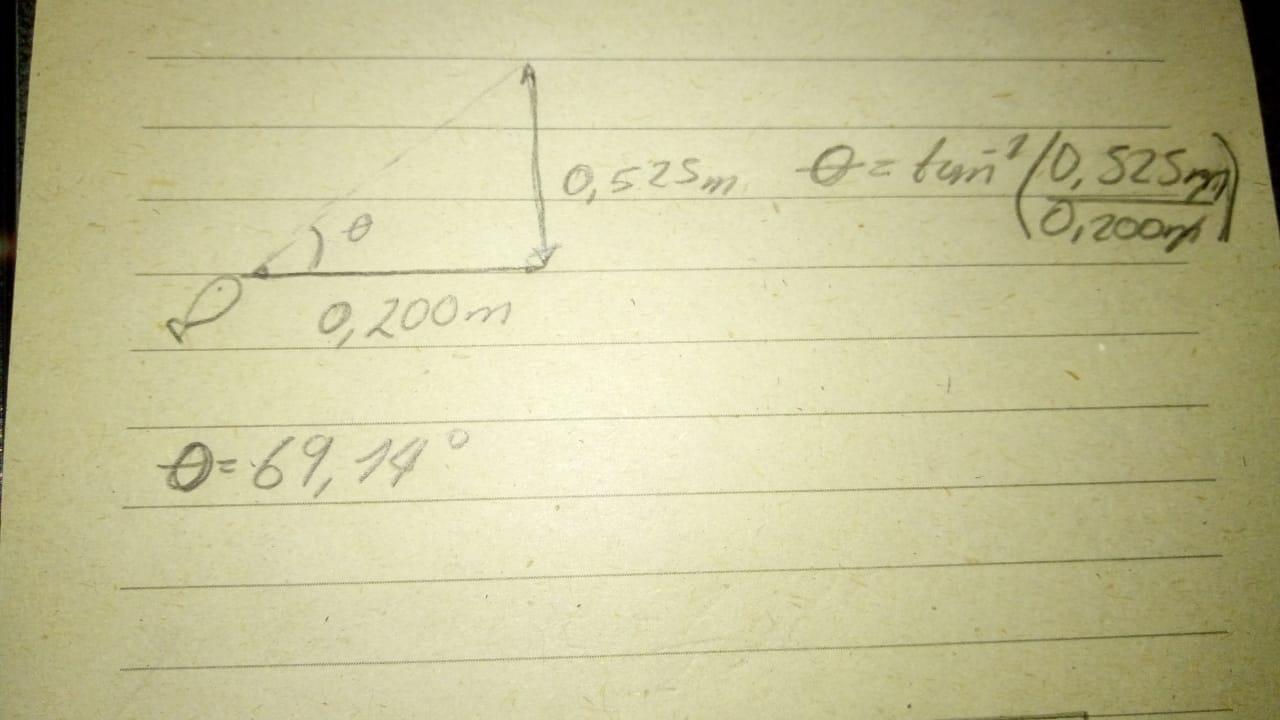 θ
0,525m
θ = tan⁻¹(0,525m/0,200m)
0,200m
θ = 69,14°